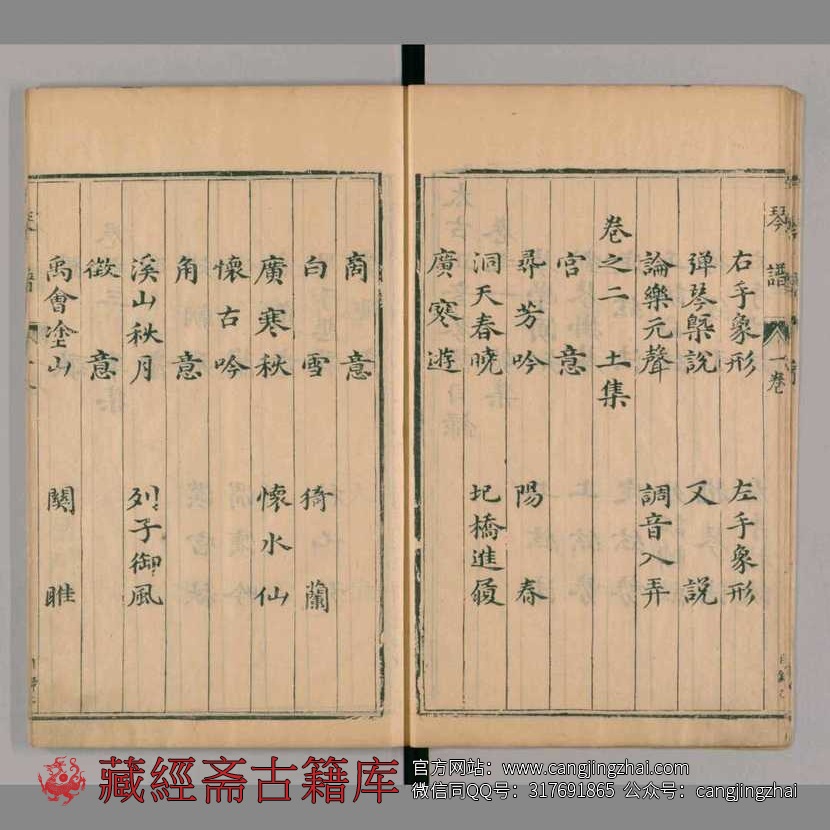 琴譜 一卷
右手象形 左手象形
彈琴槩說 又說
論樂元聲 調音入弄
卷之二 土集
宮意
尋芳吟 陽春
洞天春曉 圯橋進履
廣寒遊
商意
白雪 猗蘭
廣寒秋 懷水仙
懷古吟
角意
溪山秋月 列子御風
徵意
禹會塗山 關雎
藏經斋古籍库
官方网站：www.cangjingzhai.com
微信同QQ号：317691865 公众号：cangjingzhai